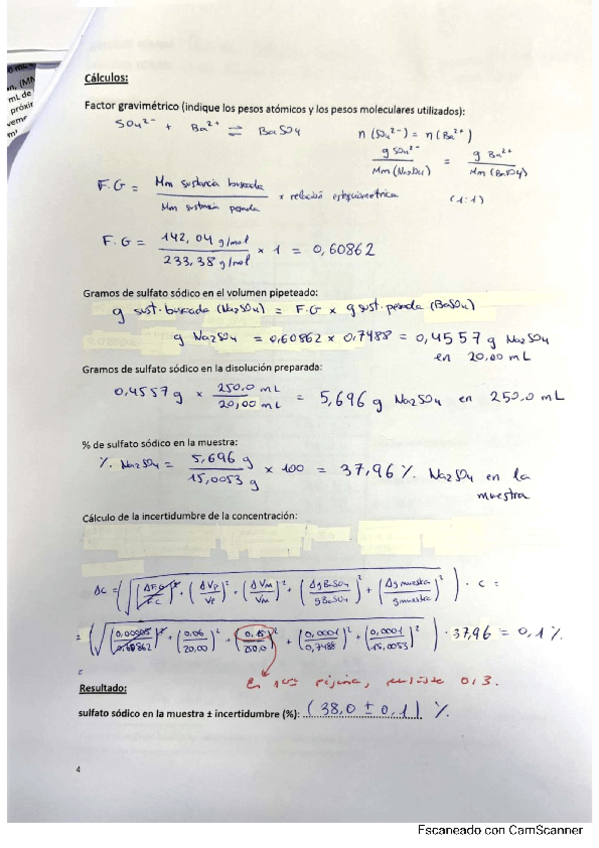 n, (MM
mL de
próxir
veme
Cálculos:
Factor gravimétrico (indique los pesos atómicos y los pesos moleculares utilizados):
SO₄²⁻ + Ba²⁺ ⇌ BaSO₄
n (SO₄²⁻) = n (Ba²⁺)
g SO₄²⁻ / Mm (Na₂SO₄) = g Ba²⁺ / Mm (BaSO₄)
F.G = Mm sustancia buscada / Mm sustancia pesada × relación estequiométrica (1:1)
F.G = 142,04 g/mol / 233,38 g/mol × 1 = 0,60862
Gramos de sulfato sódico en el volumen pipeteado:
g sust. buscada (Na₂SO₄) = F.G × g sust. pesada (BaSO₄)
g Na₂SO₄ = 0,60862 × 0,7488 = 0,4557 g Na₂SO₄
en 20,00 mL
Gramos de sulfato sódico en la disolución preparada:
0,4557 g × 250,0 mL / 20,00 mL = 5,696 g Na₂SO₄ en 250,0 mL
% de sulfato sódico en la muestra:
% Na₂SO₄ = 5,696 g / 15,0053 g × 100 = 37,96 % Na₂SO₄ en la
muestra
Cálculo de la incertidumbre de la concentración:
ΔC = (√((ΔF.G / F.G)² + (ΔVp / Vp)² + (ΔVM / VM)² + (ΔgBaSO₄ / gBaSO₄)² + (Δg muestra / g muestra)²)) · C =
= (√((0,00005 / 0,60862)² + (0,06 / 20,00)² + (0,15 / 250,0)² + (0,0001 / 0,7488)² + (0,0001 / 15,0053)²)) · 37,96 = 0,1 %
En 1ª página, pusiste 0,3.
Resultado:
sulfato sódico en la muestra ± incertidumbre (%): (38,0 ± 0,1) %
4
Escaneado con CamScanner